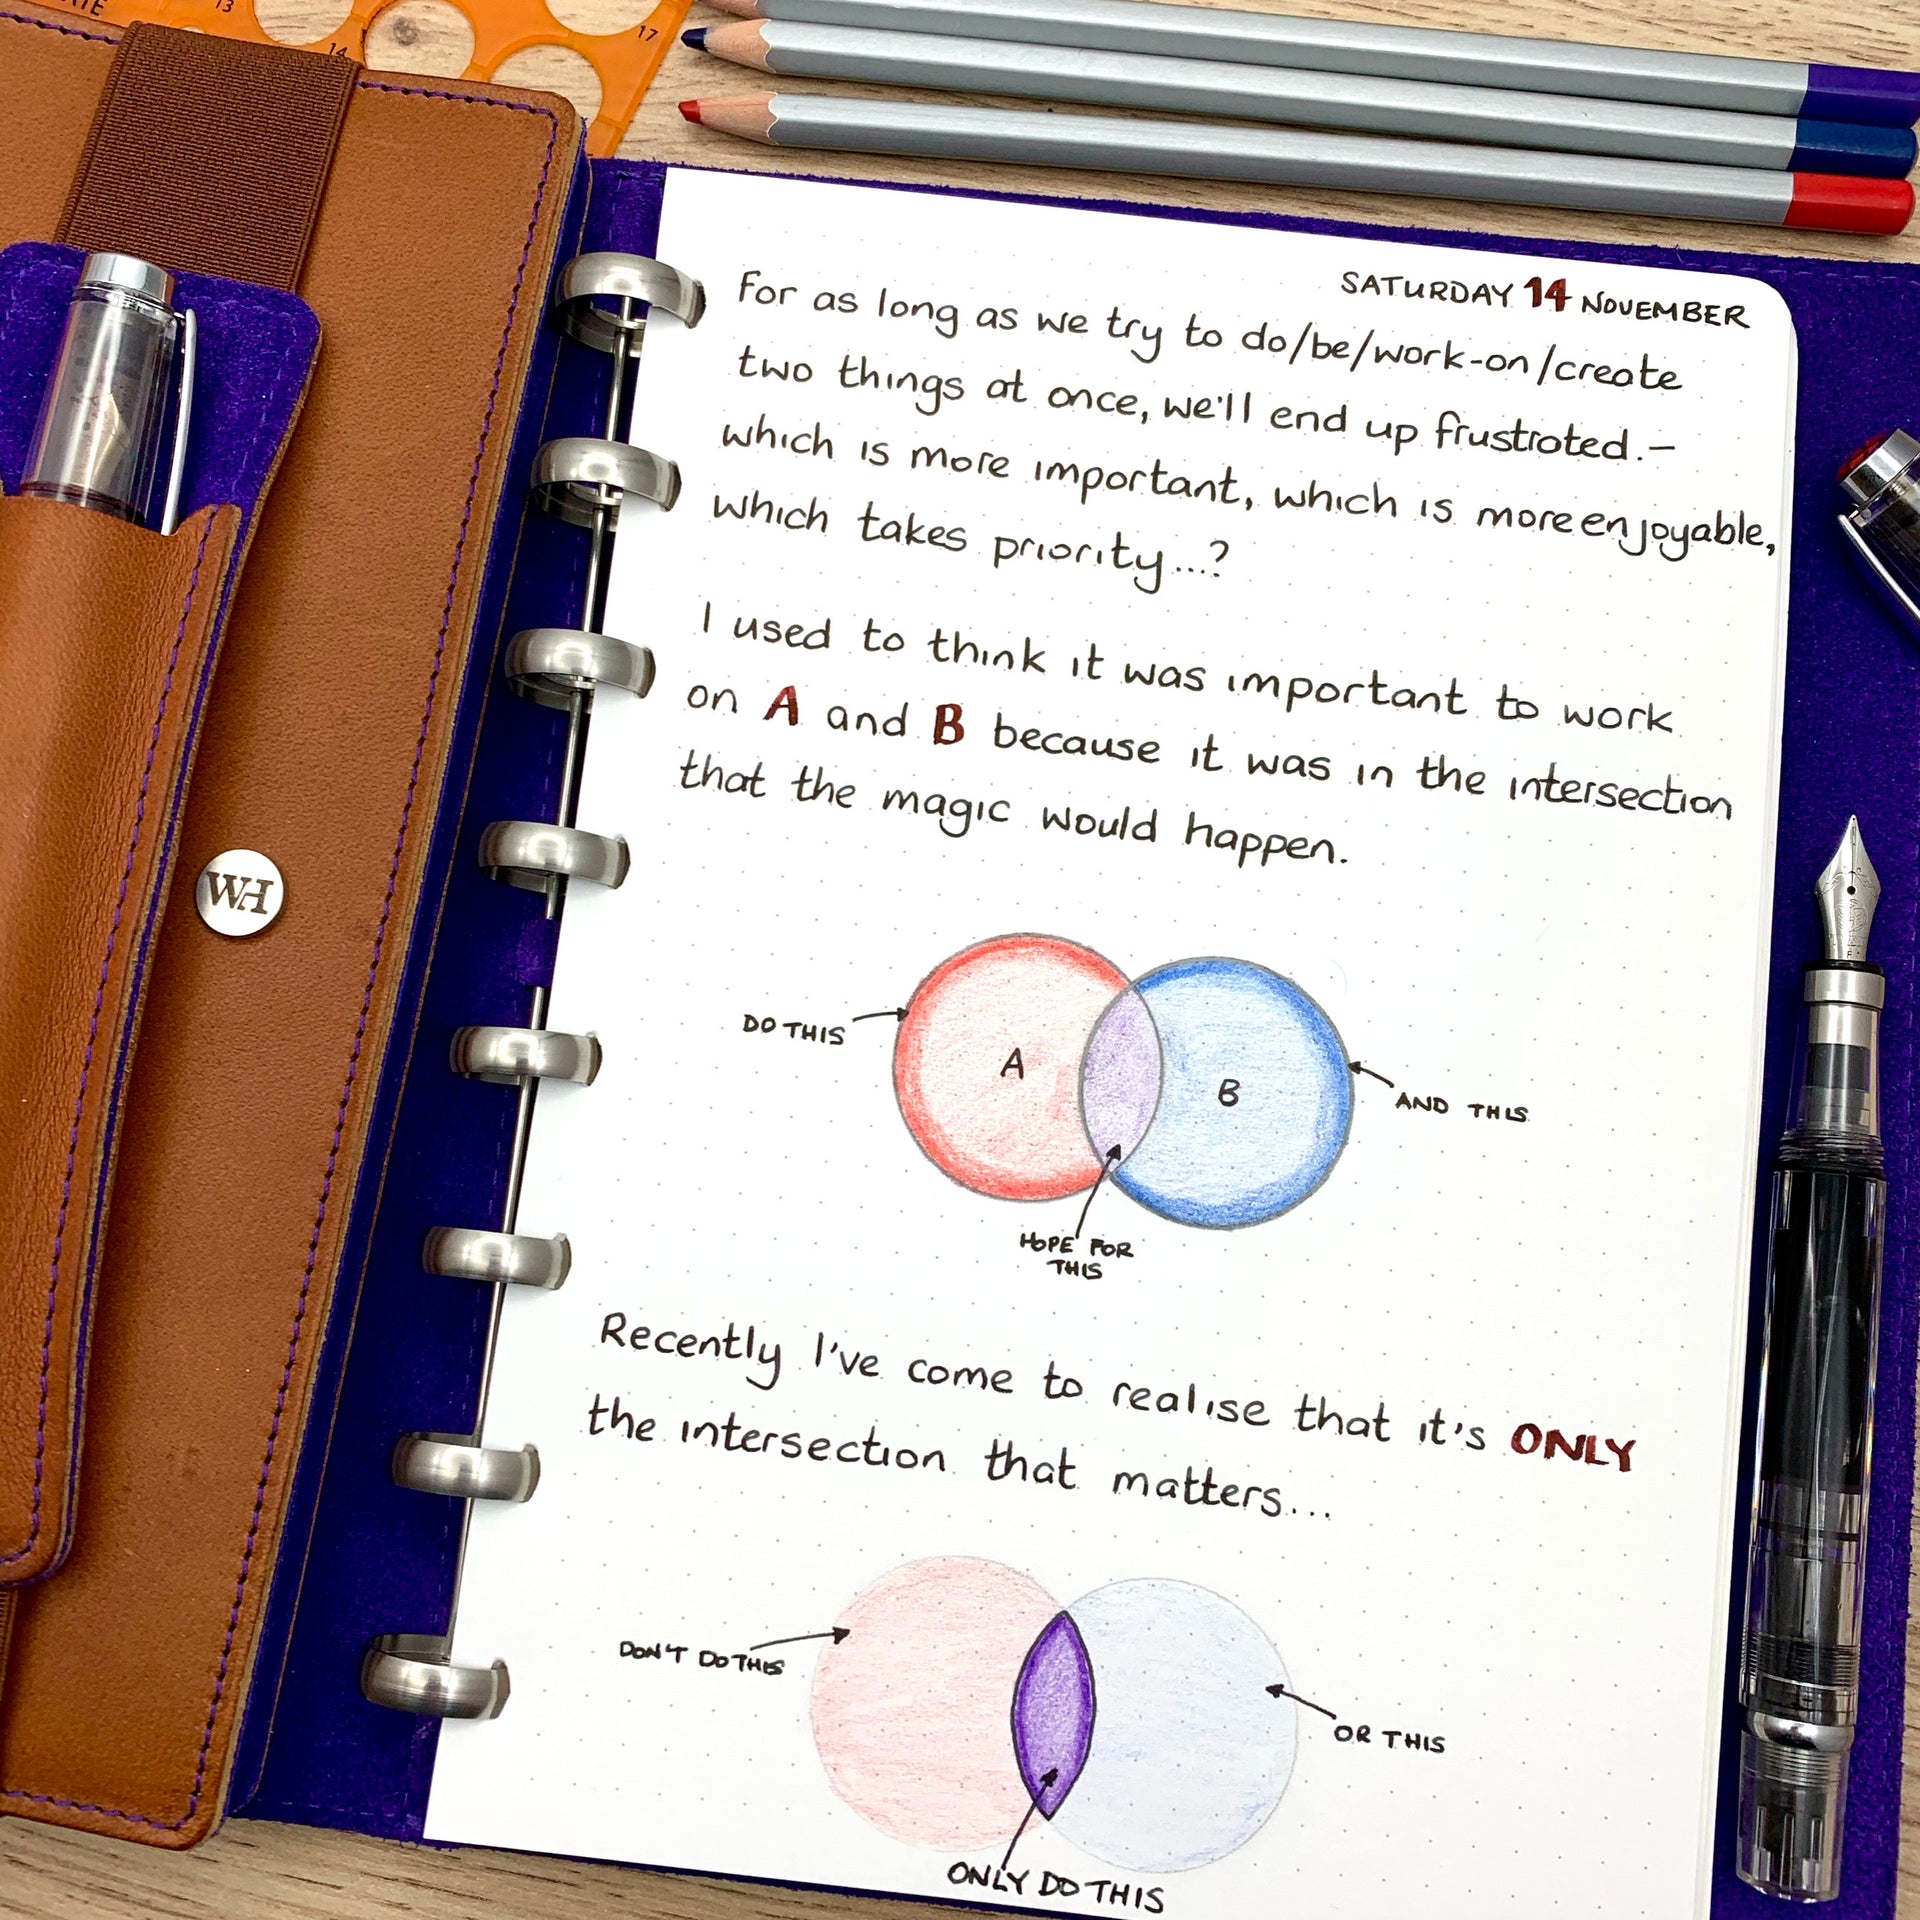 ATE
13
14
17
SATURDAY 14 NOVEMBER
For as long as we try to do/be/work-on/create
two things at once, we'll end up frustrated. –
which is more important, which is more enjoyable,
which takes priority...?
I used to think it was important to work
on A and B because it was in the intersection
that the magic would happen.
DO THIS
A
B
AND THIS
HOPE FOR
THIS
Recently I've come to realise that it's ONLY
the intersection that matters...
DON'T DO THIS
OR THIS
ONLY DO THIS
WH